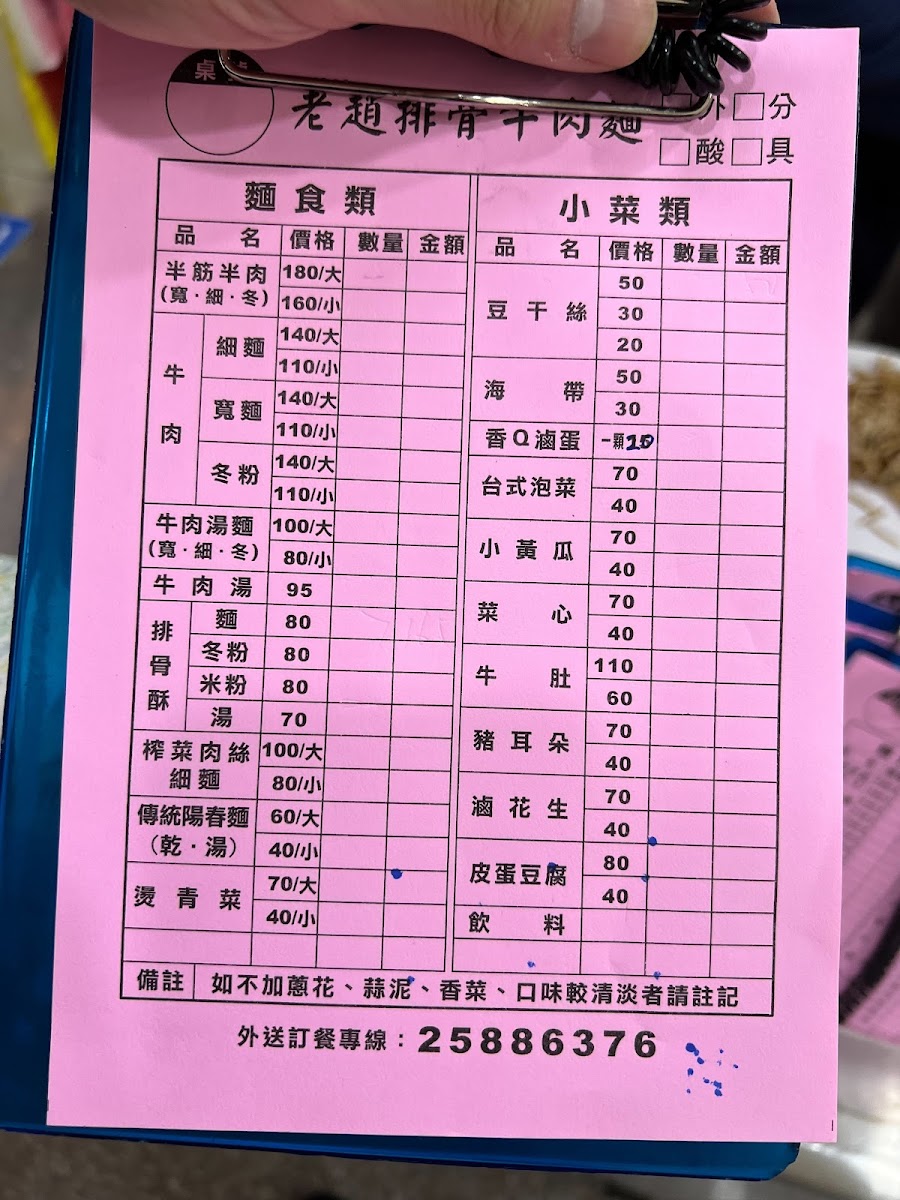 桌
老趙排骨牛肉麵
外 分
酸 具
麵食類
品名 價格 數量 金額
半筋半肉 (寬·細·冬) 180/大
160/小
牛肉 細麵 140/大
110/小
寬麵 140/大
110/小
冬粉 140/大
110/小
牛肉湯麵 (寬·細·冬) 100/大
80/小
牛肉湯 95
排骨酥 麵 80
冬粉 80
米粉 80
湯 70
榨菜肉絲細麵 100/大
80/小
傳統陽春麵 (乾·湯) 60/大
40/小
燙青菜 70/大
40/小
小菜類
品名 價格 數量 金額
豆干絲 50
30
20
海帶 50
30
香Q滷蛋 一顆
台式泡菜 70
40
小黃瓜 70
40
菜心 70
40
牛肚 110
60
豬耳朵 70
40
滷花生 70
40
皮蛋豆腐 80
40
飲料
備註 如不加蔥花、蒜泥、香菜、口味較清淡者請註記
外送訂餐專線：25886376